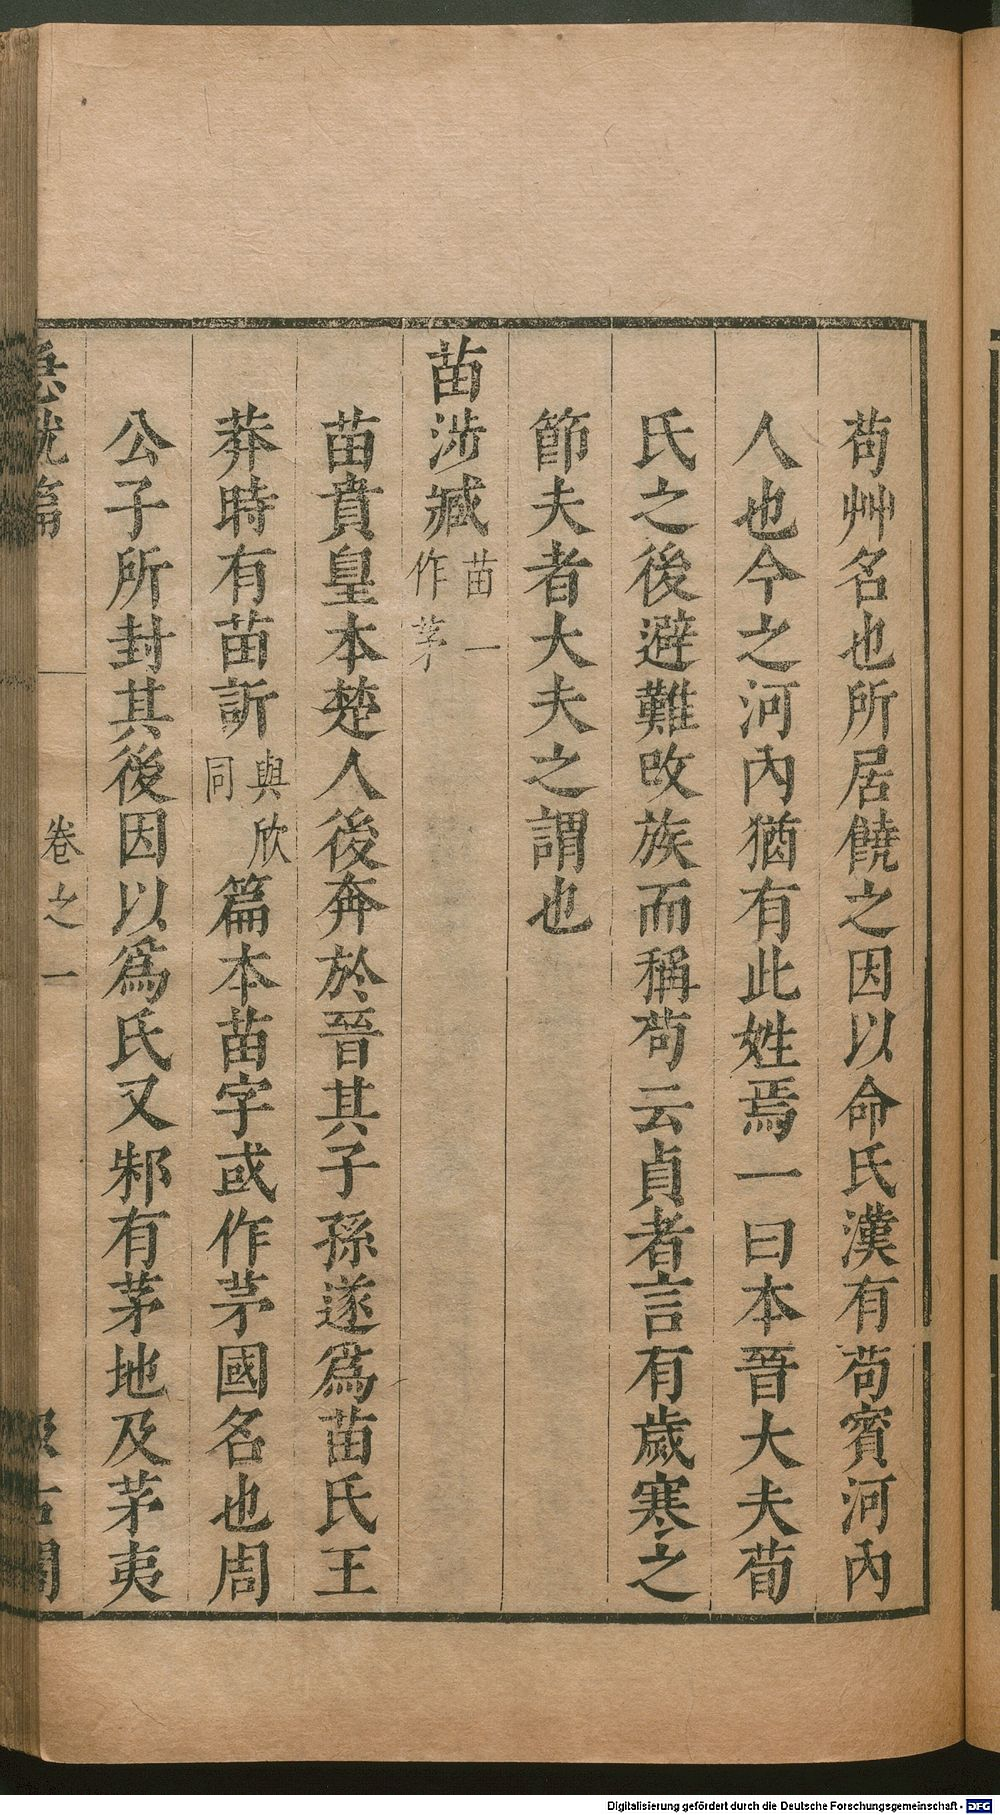 苟艸名也所居饒之因以命氏漢有苟賓河內
人也今之河內猶有此姓焉一曰本晉大夫荀
氏之後避難改族而稱苟云貞者言有歲寒之
節夫者大夫之謂也
苗涉臧苗一作茅
苗賁皇本楚人後奔於晉其子孫遂爲苗氏王
莽時有苗訢與欣同篇本苗字或作茅國名也周
公子所封其後因以爲氏又邾有茅地及茅夷
急就篇 卷之一 汲古閣
Digitalisierung gefördert durch die Deutsche Forschungsgemeinschaft - DFG